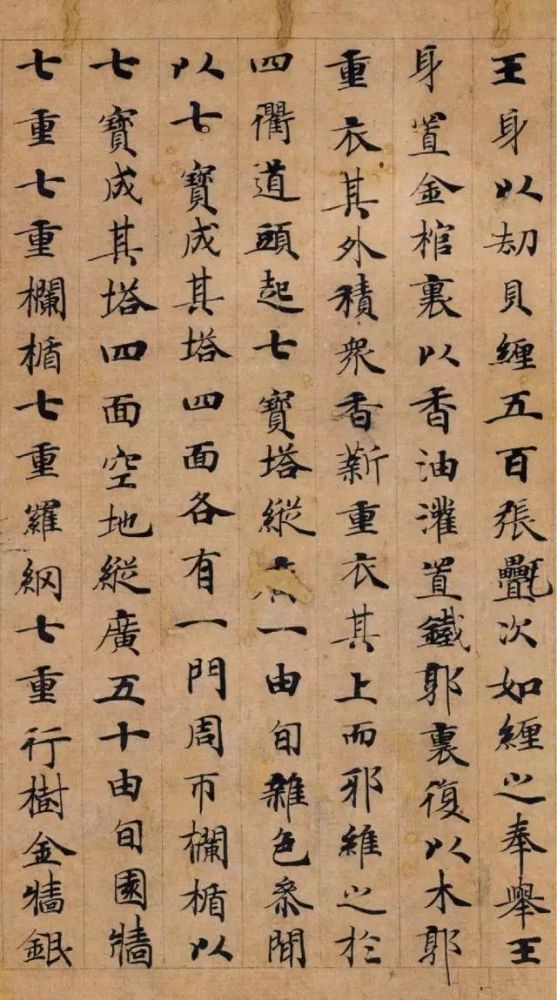 王身以劫貝纏五百張氎次如纏之奉舉王
身置金棺裏以香油灌置鐵郭裏復以木郭
重衣其外積衆香薪重衣其上而邪維之於
四衢道頭起七寶塔縱一由旬雜色参間
以七寶成其塔四面各有一門周帀欄楯以
七寶成其塔四面空地縱廣五十由旬園牆
七重七重欄楯七重羅網七重行樹金牆銀